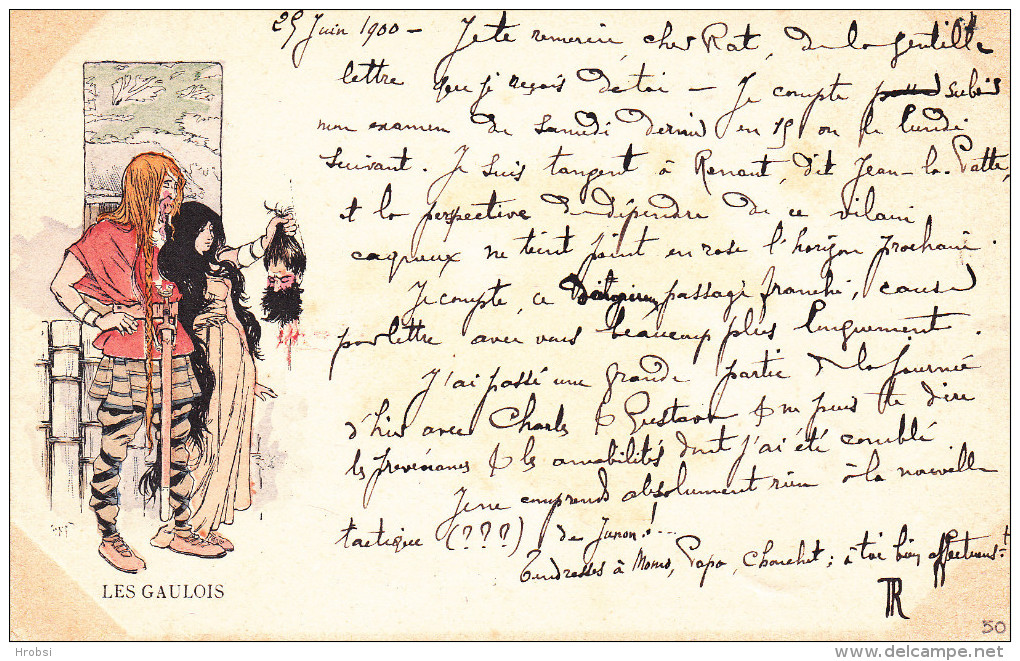 25 Juin 1900 – Je te remercie, cher Rat, de la gentille
lettre que je reçois de toi – Je compte subir
mon examen de Samedi dernier en 15 ou le lundi
suivant. Je suis tangent à Renant, dit Jean-la-Patte,
et la perspective de dépendre de ce vilain
cagneux ne teint point en rose l'horizon prochain.
Je compte, ce passage franchi, causer
par lettre avec vous beaucoup plus longuement.
J'ai passé une grande partie de la journée
d'hier avec Charles & Gustave & ne puis te dire
les prévenances & les amabilités dont j'ai été comblé.
Je ne comprends absolument rien à la nouvelle
tactique (???) de Junon!...
Tendresses à Momo, Papa, Chouchet; à toi bien affectueus-t
TR
LES GAULOIS
50
Hrobsi
www.delcampe.net